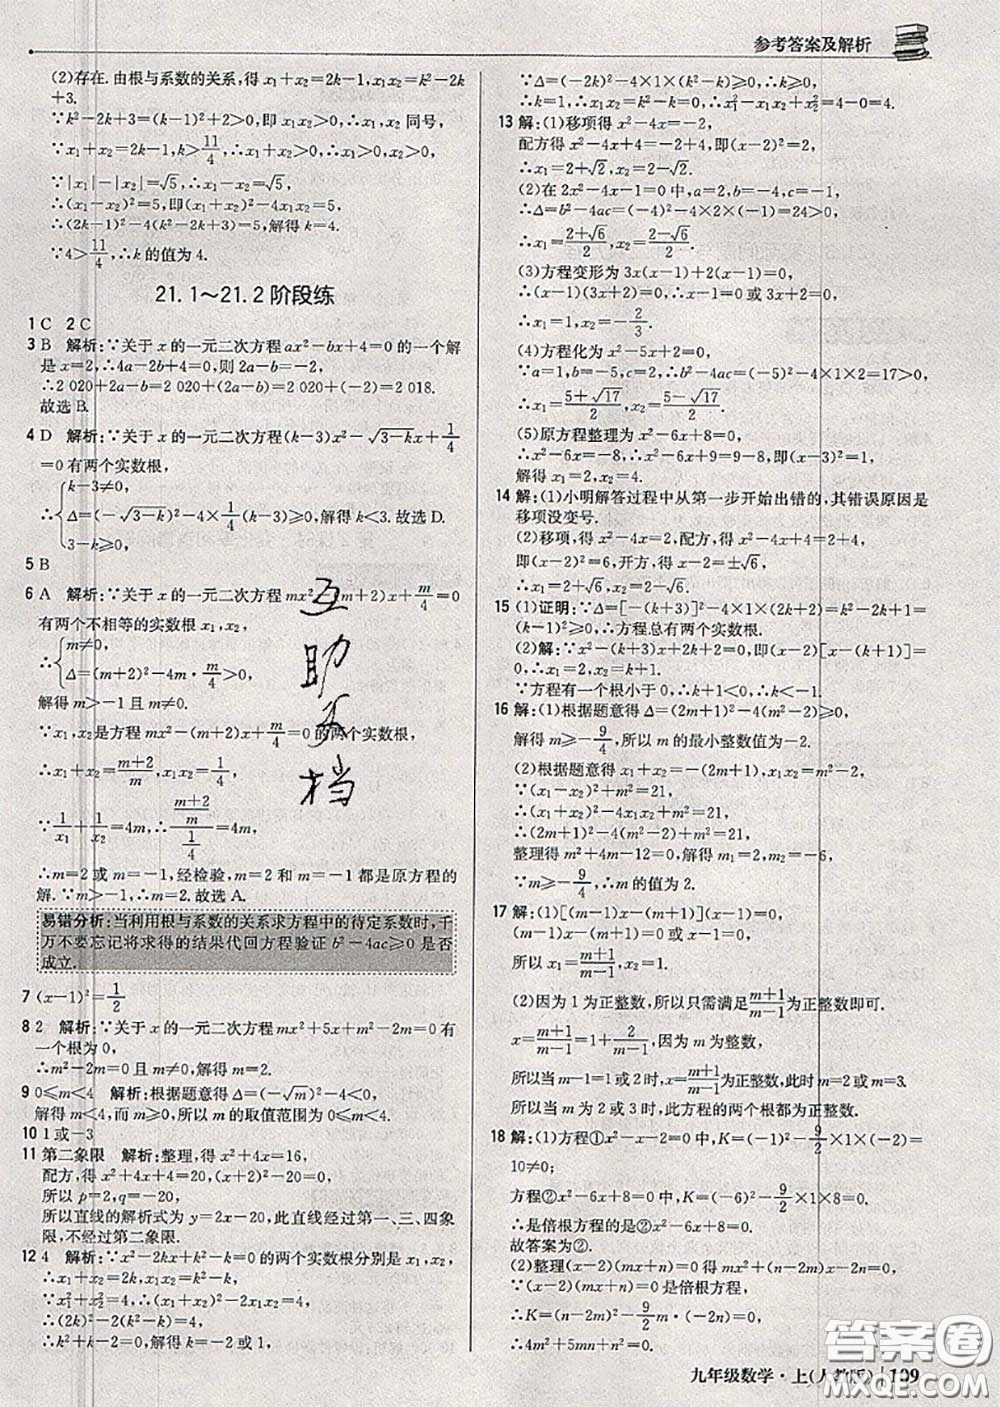 参考答案及解析
(2)存在.由根与系数的关系,得x₁+x₂=2k-1,x₁x₂=k²-2k
+3.
∵k²-2k+3=(k-1)²+2>0,即x₁x₂>0,∴x₁,x₂同号,
∵x₁+x₂=2k-1,k>11/4,∴x₁+x₂>0,∴x₁>0,x₂>0.
∵|x₁|-|x₂|=√5,∴x₁-x₂=√5,
∴(x₁-x₂)²=5,即(x₁+x₂)²-4x₁x₂=5,
∴(2k-1)²-4(k²-2k+3)=5,解得k=4.
∵4>11/4,∴k的值为4.
21.1~21.2阶段练
1 C 2 C
3 B 解析:∵关于x的一元二次方程ax²-bx+4=0的一个解
是x=2,∴4a-2b+4=0,则2a-b=-2,
∴2 020+2a-b=2 020+(2a-b)=2 020+(-2)=2 018.
故选B.
4 D 解析:∵关于x的一元二次方程(k-3)x²-√(3-k)x+1/4
=0有两个实数根,
∴{k-3≠0,
Δ=(-√(3-k))²-4×1/4(k-3)≥0,解得k<3.故选D.
3-k≥0,
5 B
6 A 解析:∵关于x的一元二次方程mx²-(m+2)x+m/4=0
有两个不相等的实数根x₁,x₂,
∴{m≠0,
Δ=(m+2)²-4m·m/4>0,
解得m>-1且m≠0.
∵x₁,x₂是方程mx²-(m+2)x+m/4=0的两个实数根,
∴x₁+x₂=(m+2)/m,x₁x₂=1/4,
∵1/x₁+1/x₂=4m,∴((m+2)/m)/(1/4)=4m,
∴m=2或m=-1,经检验,m=2和m=-1都是原方程的
解.∵m>-1,∴m=2.故选A.
易错分析:当利用根与系数的关系求方程中的待定系数时,千
万不要忘记将求得的结果代回方程验证b²-4ac≥0是否
成立.
7 (x-1)²=1/2
8 2 解析:∵关于x的一元二次方程mx²+5x+m²-2m=0有
一个根为0,
∴m²-2m=0且m≠0,解得m=2.
9 0≤m<4 解析:根据题意得Δ=(-√m)²-4<0,
解得m<4,而m≥0,所以m的取值范围为0≤m<4.
10 1或-3
11 第二象限 解析:整理,得x²+4x=16,
配方,得x²+4x+4=20,(x+2)²=20,
所以p=2,q=-20,
所以直线的解析式为y=2x-20,此直线经过第一、三、四象
限,不经过第二象限.
12 4 解析:∵x²-2kx+k²-k=0的两个实数根分别是x₁,x₂,
∴x₁+x₂=2k,x₁x₂=k²-k,
∵x₁²+x₂²=4,∴(x₁+x₂)²-2x₁x₂=4,
∴(2k)²-2(k²-k)=4,
∴k²+k-2=0,解得k=-2或k=1,
∵Δ=(-2k)²-4×1×(k²-k)≥0,∴k≥0,
∴k=1,∴x₁x₂=k²-k=0,∴x₁²-x₁x₂+x₂²=4-0=4.
13 解:(1)移项得x²-4x=-2,
配方得x²-4x+4=-2+4,即(x-2)²=2,
∴x₁=2+√2,x₂=2-√2.
(2)在2x²-4x-1=0中,a=2,b=-4,c=-1,
∴Δ=b²-4ac=(-4)²-4×2×(-1)=24>0,
∴x₁=(2+√6)/2,x₂=(2-√6)/2.
(3)方程变形为3x(x-1)+2(x-1)=0,
∴(x-1)(3x+2)=0,
∴x₁=1,x₂=-2/3.
(4)方程化为x²-5x+2=0,
∵a=1,b=-5,c=2,∴b²-4ac=(-5)²-4×1×2=17>0,
∴x₁=(5+√17)/2,x₂=(5-√17)/2.
(5)原方程整理为x²-6x+8=0,
∴x²-6x=-8,∴x²-6x+9=9-8,即(x-3)²=1,
解得x₁=2,x₂=4.
14 解:(1)小明解答过程中从第一步开始出错的,其错误原因是
移项没变号.
(2)移项,得x²-4x=2,配方,得x²-4x+4=2+4,
即(x-2)²=6,开方,得x-2=±√6,
∴x₁=2+√6,x₂=2-√6.
15 (1)证明:∵Δ=[-(k+3)]²-4×1×(2k+2)=k²-2k+1=
(k-1)²≥0,∴方程总有两个实数根.
(2)解:∵x²-(k+3)x+2k+2=0,即(x-2)[x-(k+1)]=
0,∴x₁=2,x₂=k+1.
∵方程有一个根小于0,∴k+1<0,∴k<-1.
16 解:(1)根据题意得Δ=(2m+1)²-4(m²-2)≥0,
解得m≥-9/4,所以m的最小整数值为-2.
(2)根据题意得x₁+x₂=-(2m+1),x₁x₂=m²-2,
∵(x₁-x₂)²+m²=21,
∴(x₁+x₂)²-4x₁x₂+m²=21,
∴(2m+1)²-4(m²-2)+m²=21,
整理得m²+4m-12=0,解得m₁=2,m₂=-6,
∵m≥-9/4,∴m=2.
17 解:(1)(m-1)x²-2mx+m+1=0,
(m-1)(x-1)(x-(m+1)/(m-1))=0,
所以x₁=1,x₂=(m+1)/(m-1).
(2)因为1为正整数,所以只需满足(m+1)/(m-1)为正整数即可.
x=(m+1)/(m-1)=1+2/(m-1),因为m为整数,
所以当m-1=1或2时,x=(m+1)/(m-1)为正整数,此时m=2或m=3,
所以当m为2或3时,此方程的两个根都为正整数.
18 解:(1)方程①x²-x-2=0中,K=(-1)²-9/2×1×(-2)=
10≠0;
方程②x²-6x+8=0中,K=(-6)²-9/2×1×8=0,
∴是倍根方程的是②.
故答案为②.
(2)整理(x-2)(mx+n)=0得mx²+(n-2m)x-2n=0,
∵(x-2)(mx+n)=0是倍根方程,
∴K=(n-2m)²-9/2m·(-2n)=0,
∴4m²+5mn+n²=0.
互
助
文
档
九年级数学·上(人教版) 109
答案圈
MXQE.COM